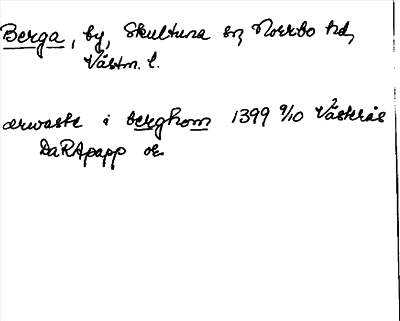 Berga, by, Skultuna sn, Norrbo hd,
Västm. l.
ærwasth i berghom 1399 9/10 Västerås
DaRApapp or.